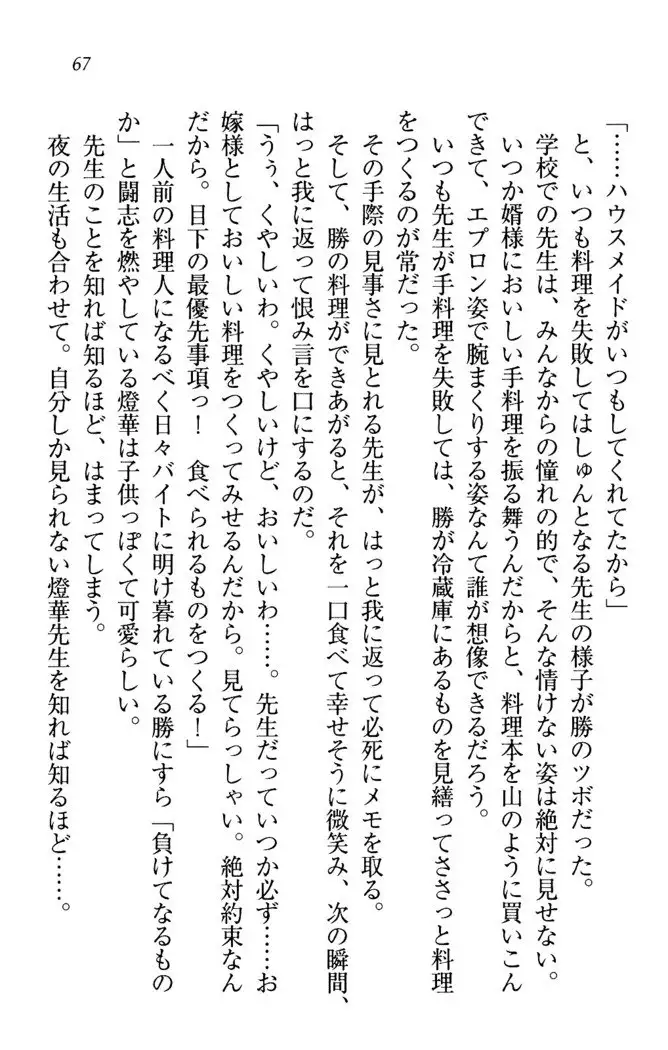 67
「……ハウスメイドがいつもしてくれてたから」
と、いつも料理を失敗してはしゅんとなる先生の様子が勝のツボだった。
学校での先生は、みんなからの憧れの的で、そんな情けない姿は絶対に見せない。
いつか婿様においしい手料理を振る舞うんだからと、料理本を山のように買いこん
できて、エプロン姿で腕まくりする姿なんて誰が想像できるだろう。
いつも先生が手料理を失敗しては、勝が冷蔵庫にあるものを見繕ってささっと料理
をつくるのが常だった。
その手際の見事さに見とれる先生が、はっと我に返って必死にメモを取る。
そして、勝の料理ができあがると、それを一口食べて幸せそうに微笑み、次の瞬間、
はっと我に返って恨み言を口にするのだ。
「うぅ、くやしいわ。くやしいけど、おいしいわ……。先生だっていつか必ず……お
嫁様としておいしい料理をつくってみせるんだから。見てらっしゃい。絶対約束なん
だから。目下の最優先事項っ！　食べられるものをつくる！」
一人前の料理人になるべく日々バイトに明け暮れている勝にすら「負けてなるもの
か」と闘志を燃やしている燈華は子供っぽくて可愛らしい。
先生のことを知れば知るほど、はまってしまう。
夜の生活も合わせて。自分しか見られない燈華先生を知れば知るほど……。